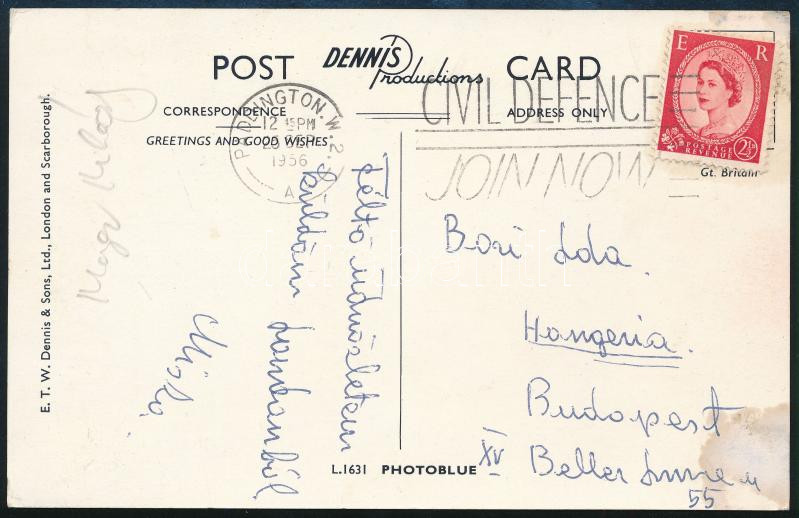 POST DENNIS Productions CARD
CORRESPONDENCE
ADDRESS ONLY
GREETINGS AND GOOD WISHES
PADDINGTON. W.2.
12 15 PM
SEP
1956
A
CIVIL DEFENCE
JOIN NOW
E R
POSTAGE
REVENUE
2½D
Gt. Britain
Féltő üdvözletem
küldöm Londonból
Miki
Bori Ida.
Hangeria.
Budapest
XV Beller Imre u
55
L.1631 PHOTOBLUE
E. T. W. Dennis & Sons, Ltd., London and Scarborough.